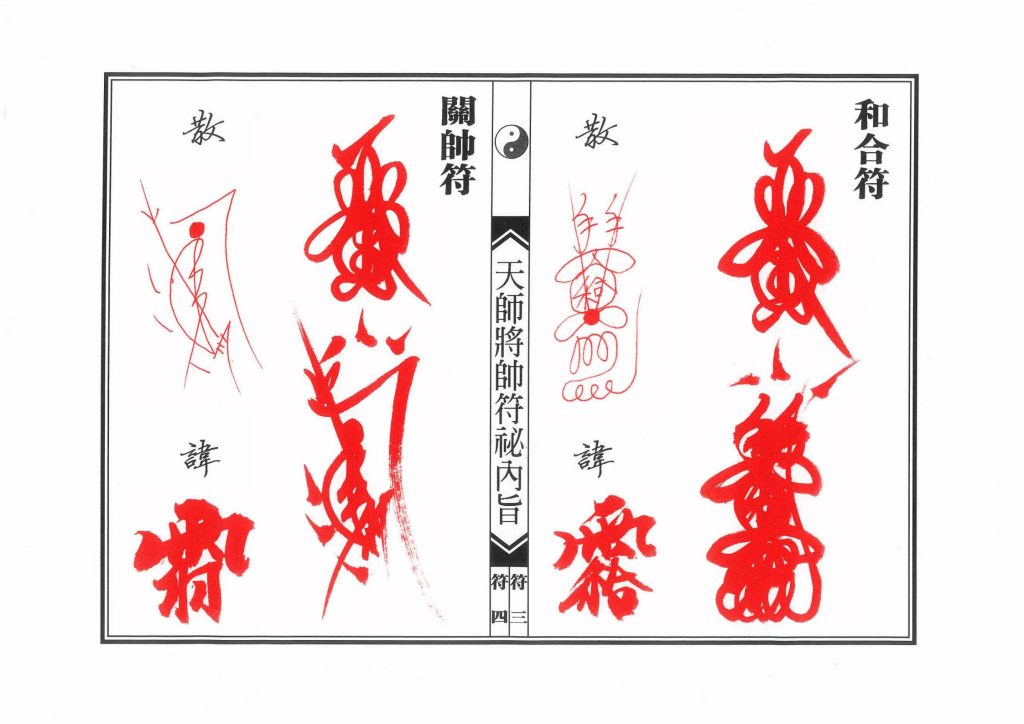 和合符
散
諱
天師將帥符祕內旨
符三
符四
關帥符
散
諱